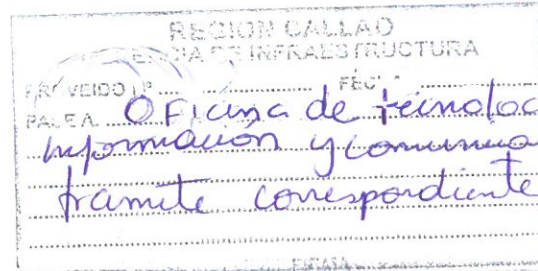 REGION CALLAO
GERENCIA DE INFRAESTRUCTURA
PROVEIDO Nº FECHA
PASE A Oficina de tecnolog
información y comunica
tramite correspondiente